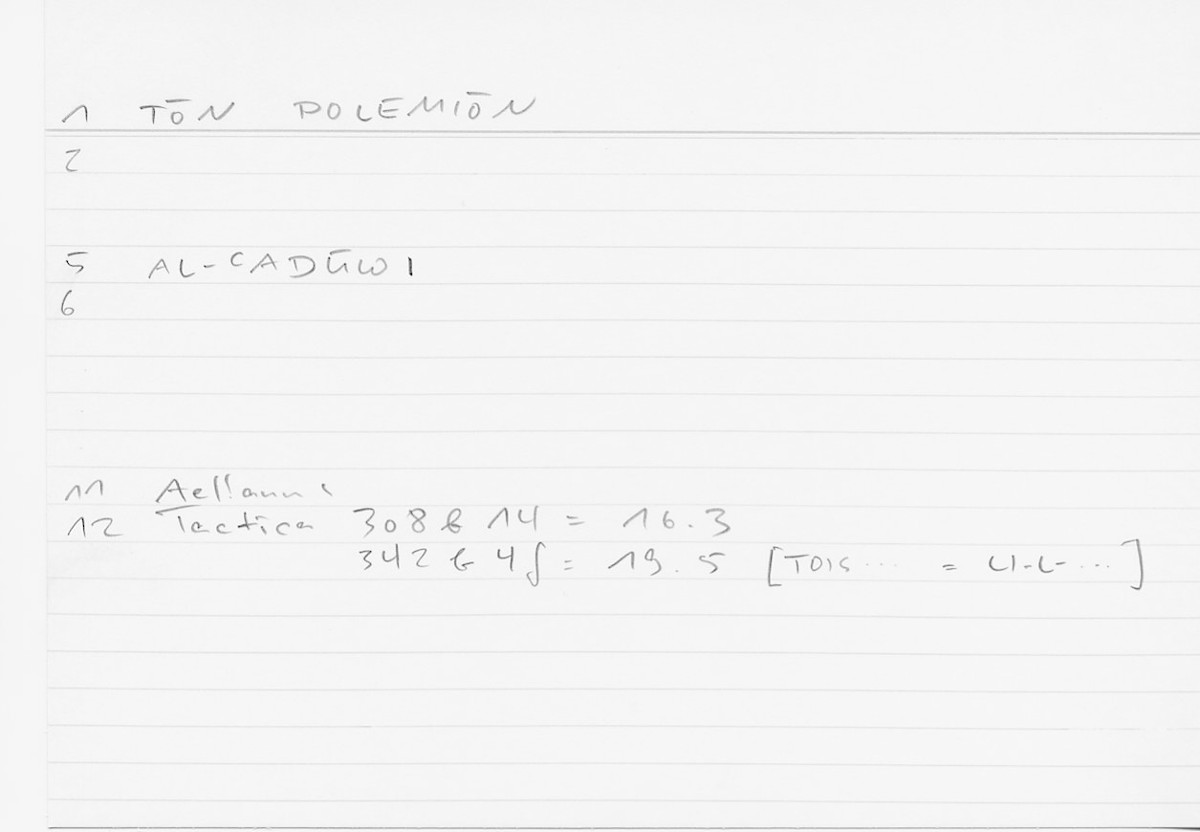 1 TŌN POLEMIŌN
2
5 AL-ʿADŪWI
6
11 Aelianus
12 Tactica 308 b 14 = 16.3
342 b 4ʃ = 19.5 [TOIS ... = LI-L- ...]